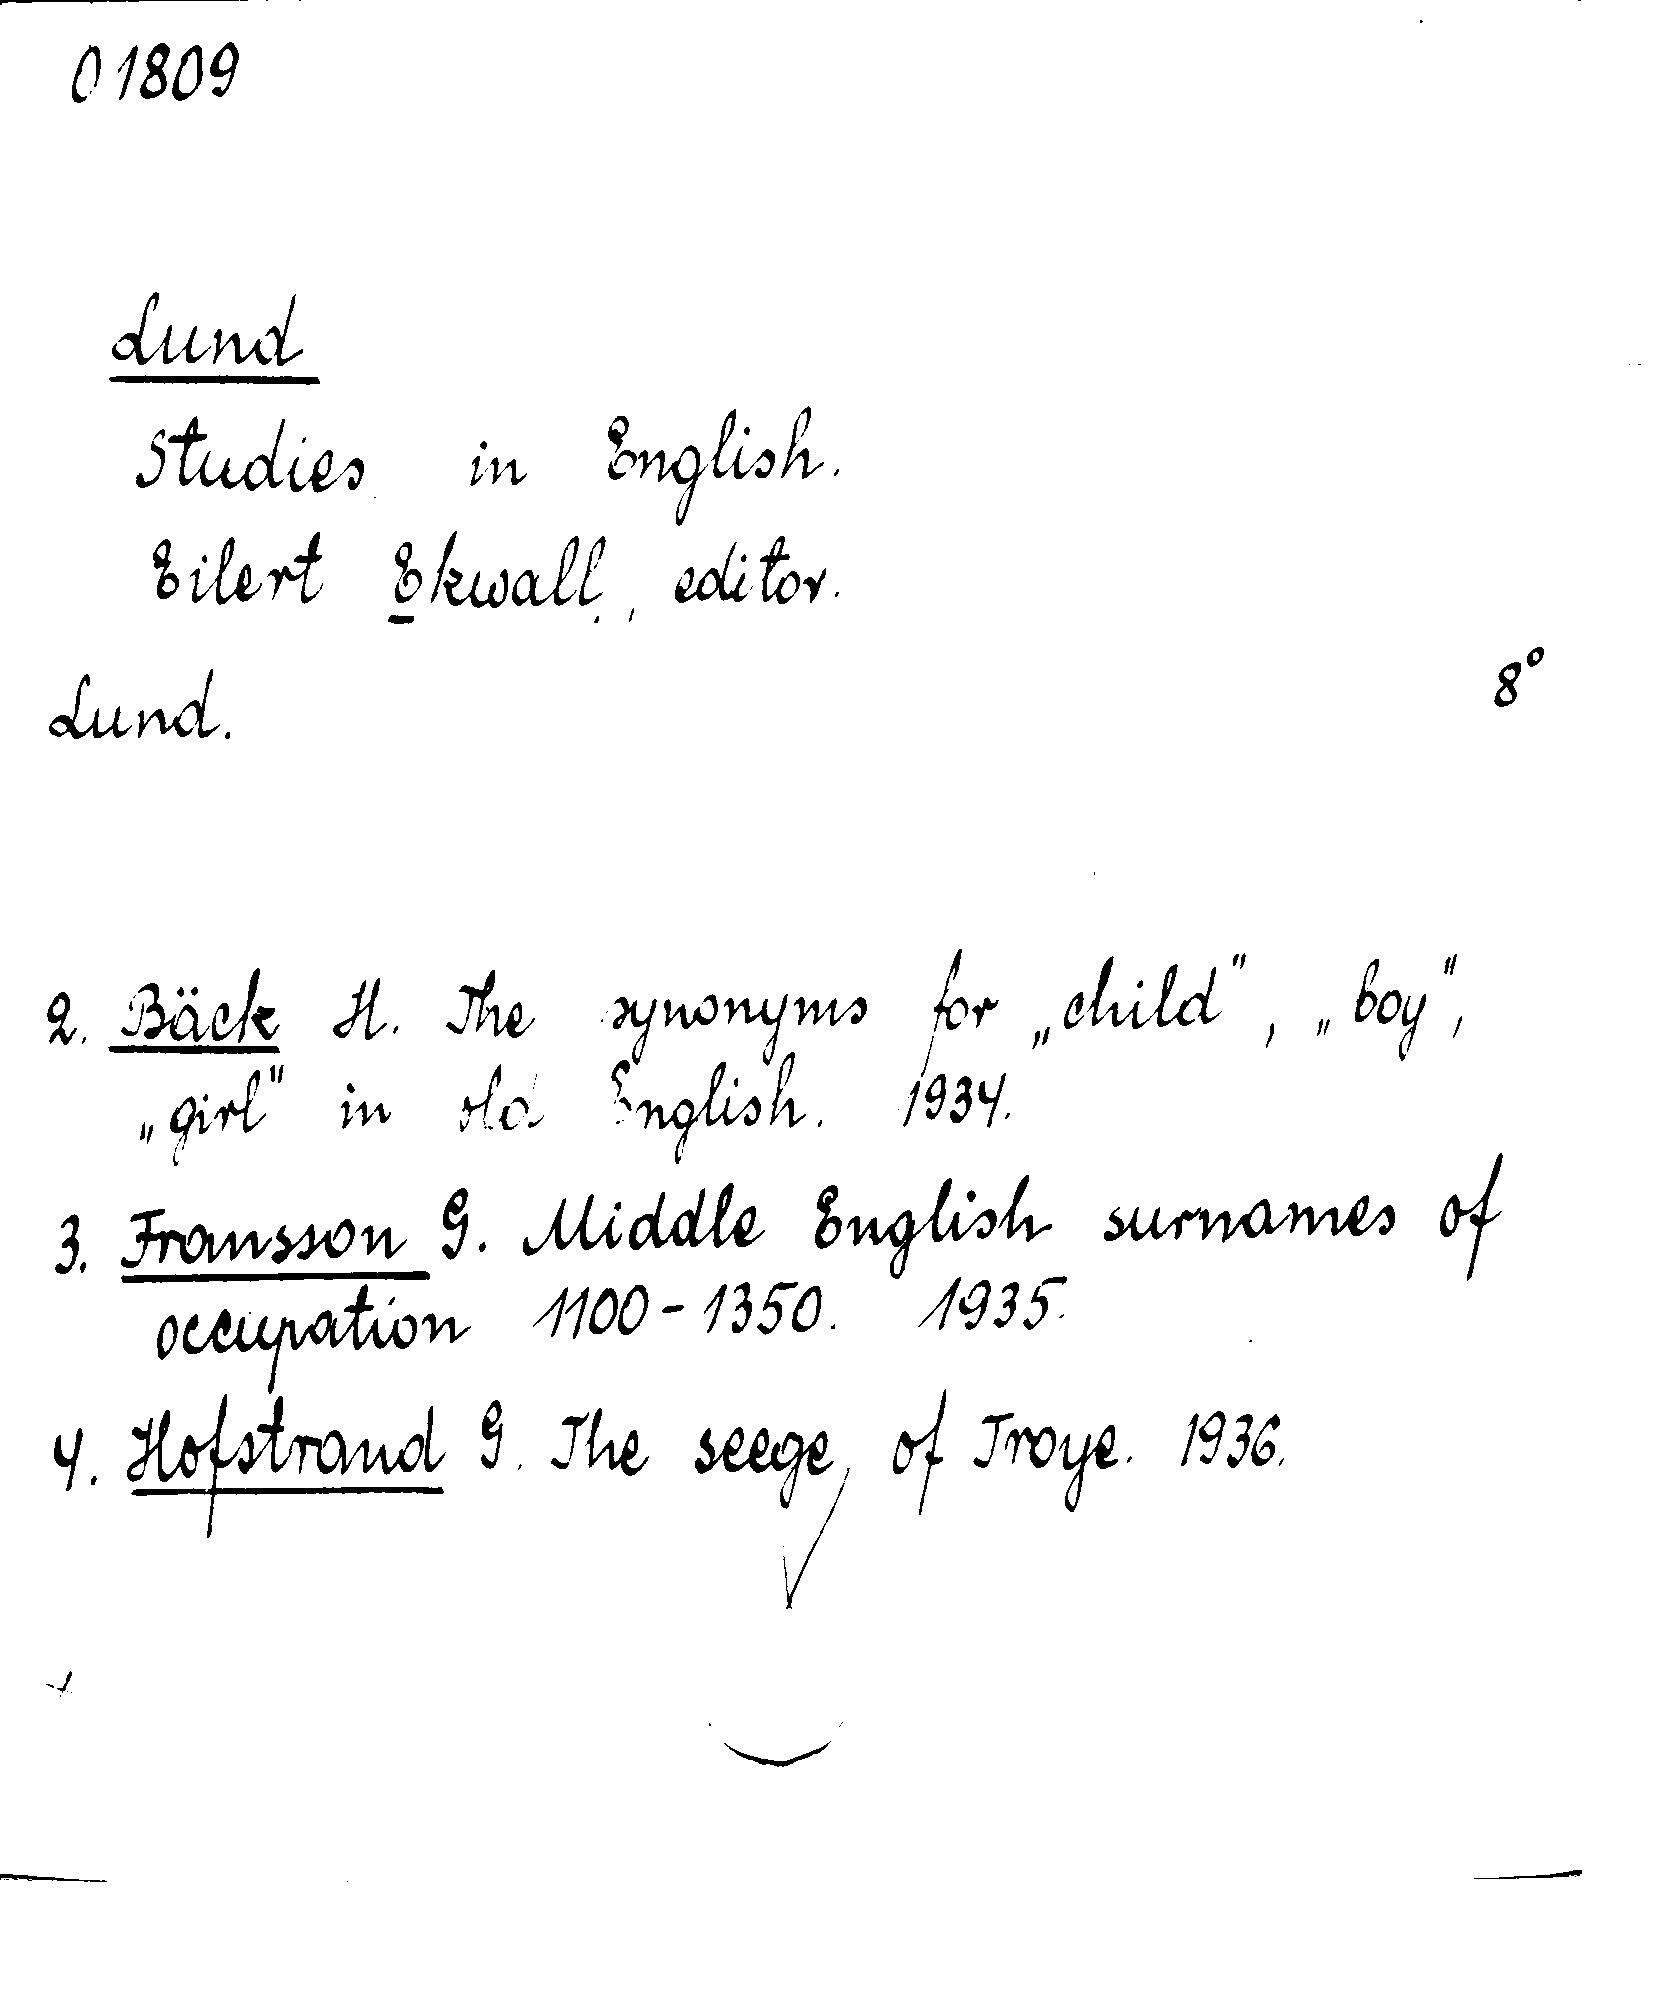 01809
Lund
Studies in English.
Eilert Ekwall, editor.
8°
Lund.
2. Bäck H. The synonyms for „child", „boy",
„girl" in old English. 1934.
3. Fransson G. Middle English surnames of
occupation 1100-1350. 1935.
4. Hofstrand G. The seege of Troye. 1936.